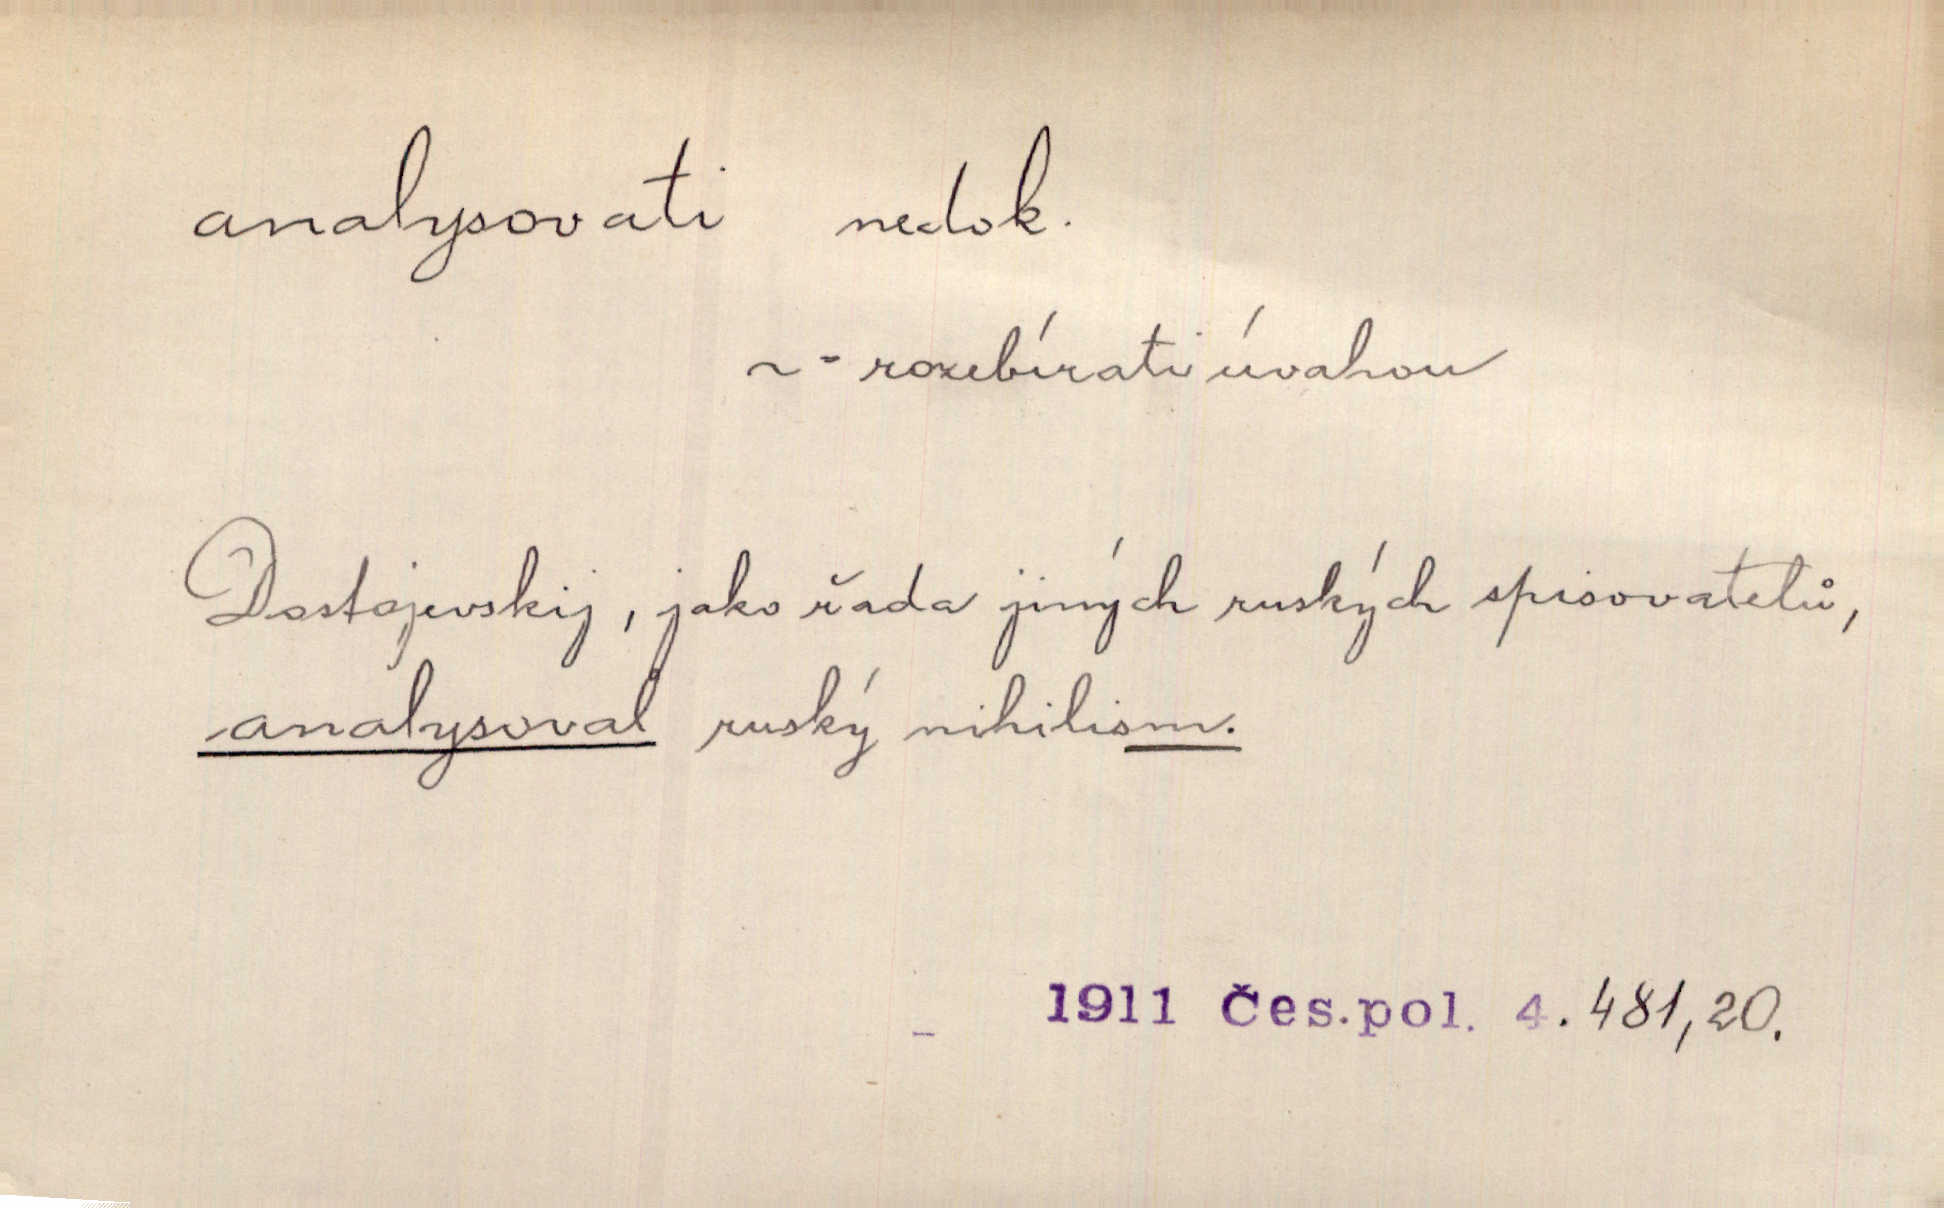 analysovati nedok.
~ - rozebírati úvahou
Dostojevskij, jako řada jiných ruských spisovatelů,
analysoval ruský nihilism.
1911 Čes.pol. 4. 481,20.